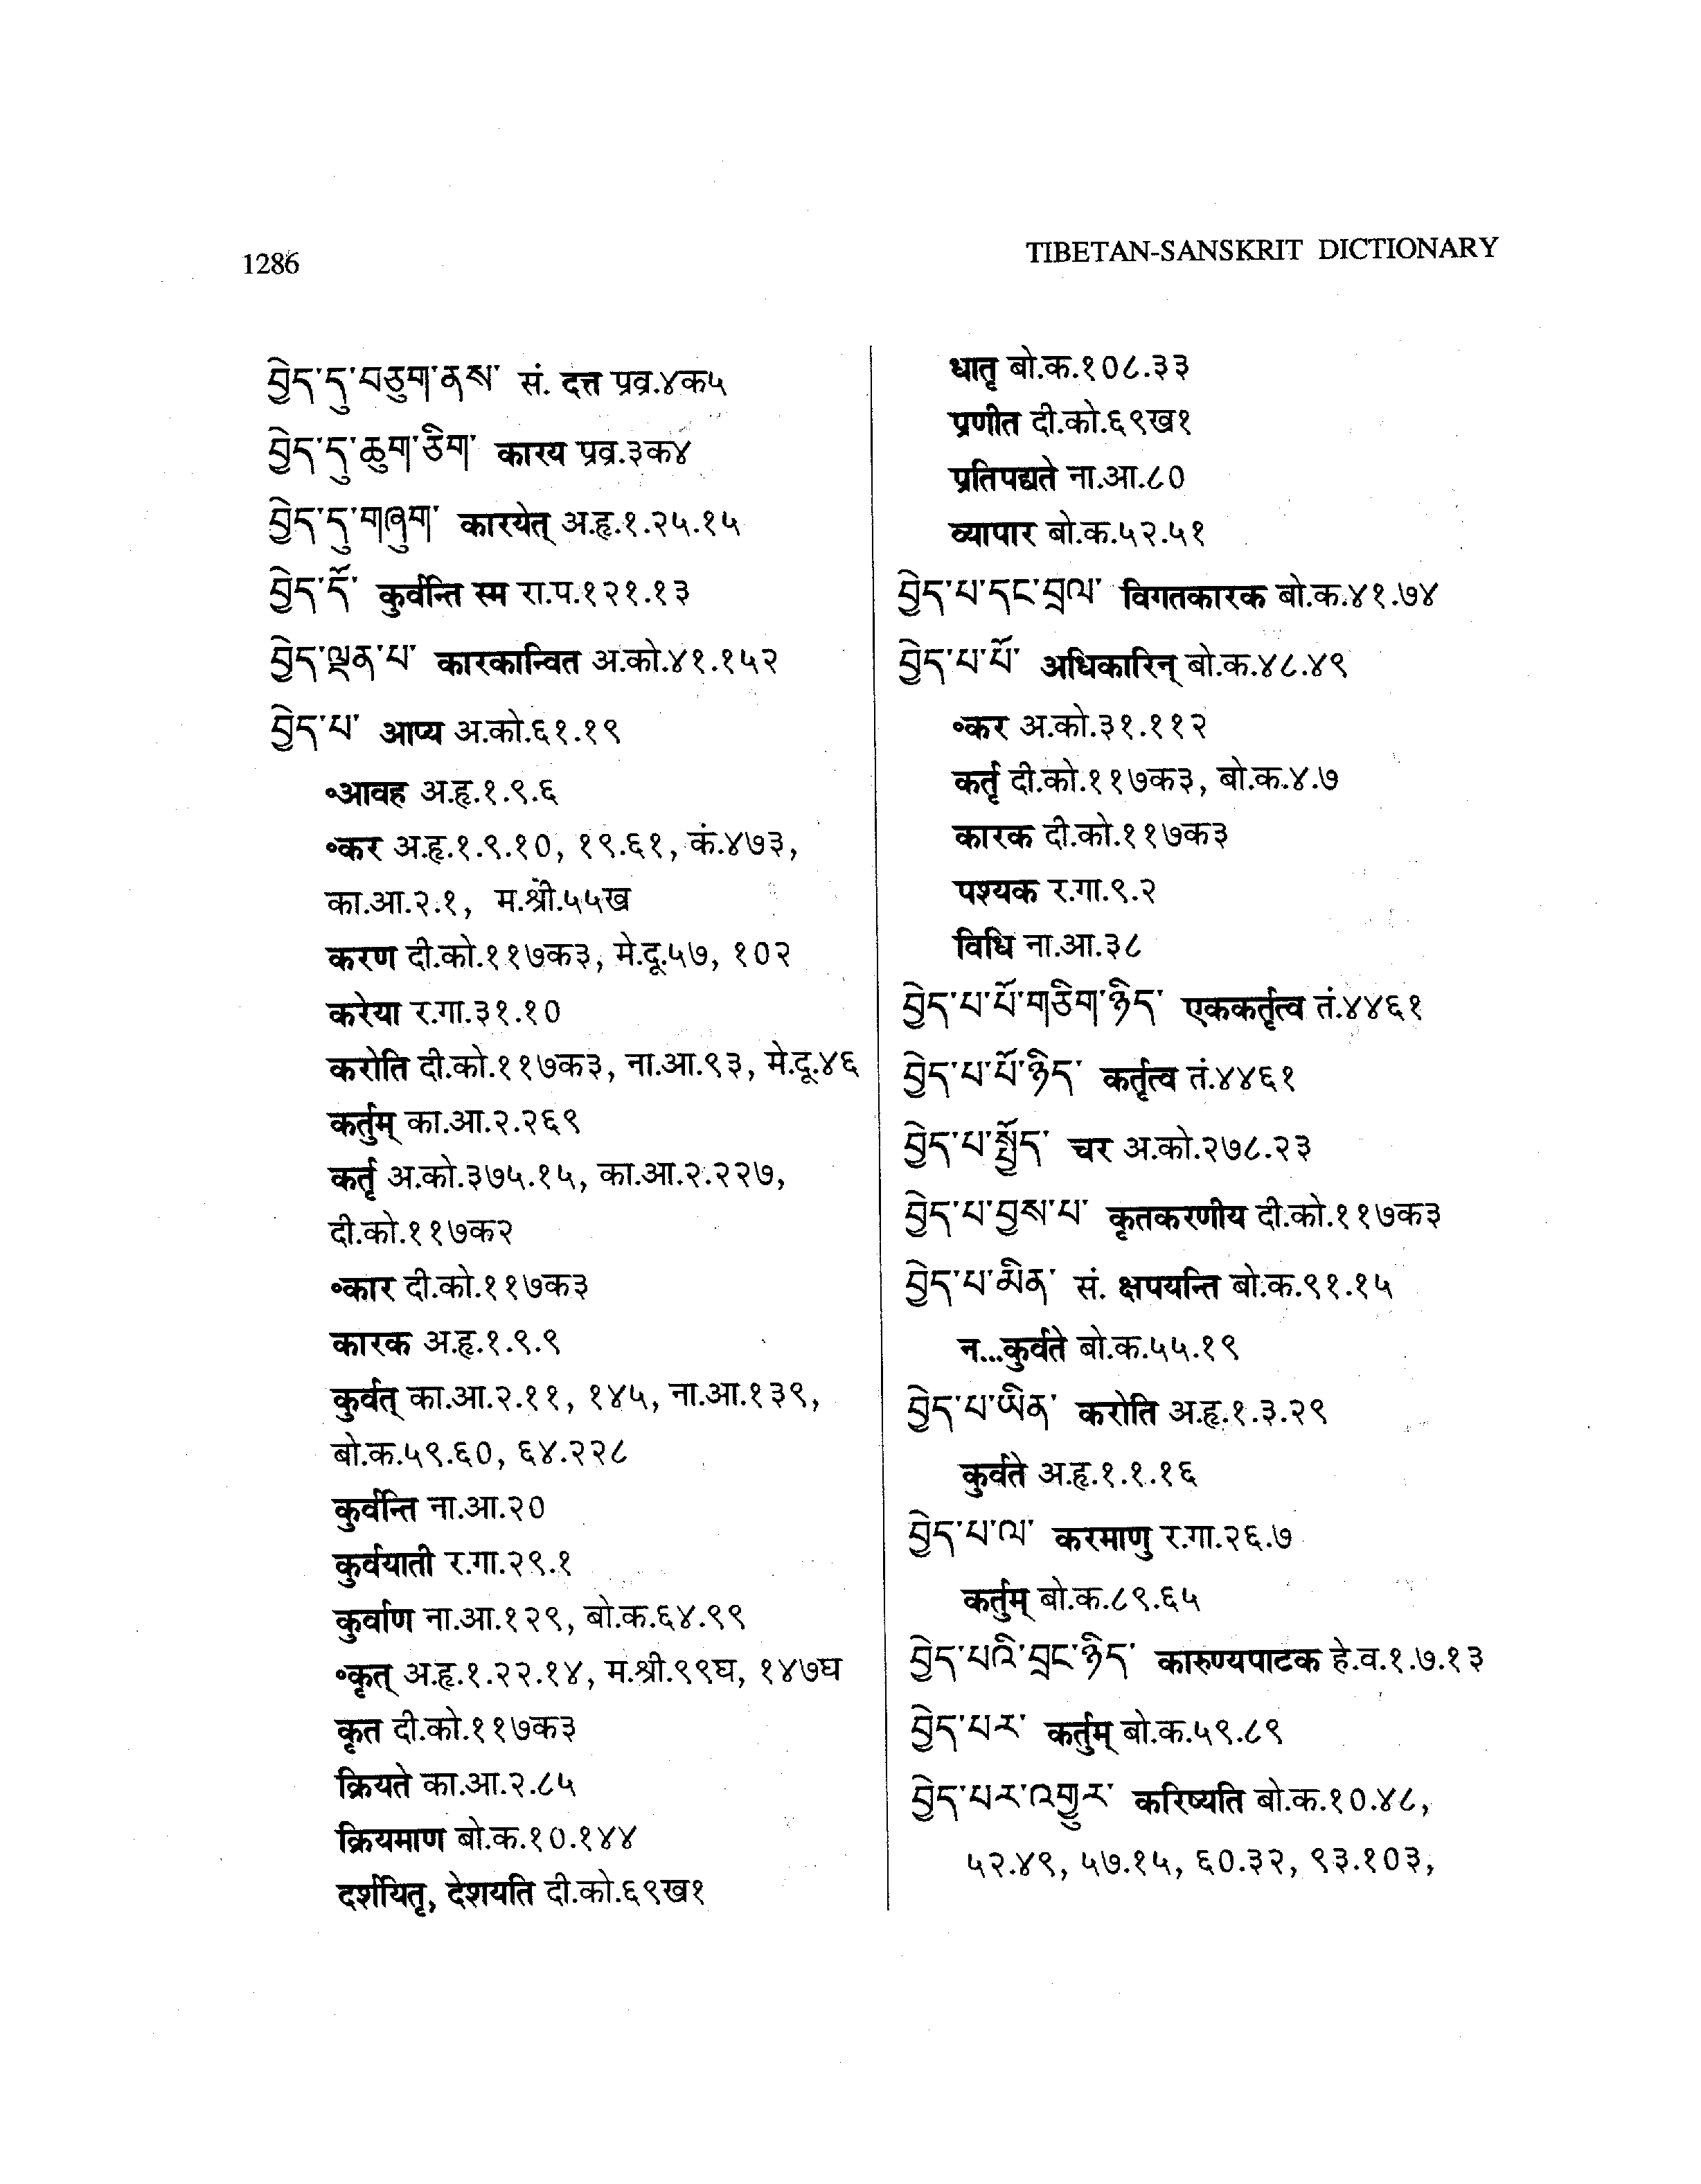 1286
TIBETAN-SANSKRIT DICTIONARY
བྱེད་དུ་བཅུག་ནས་ सं. दत्त प्रव्र.४क५
བྱེད་དུ་ཆུག་ཅིག་ कारय प्रव्र.३क४
བྱེད་དུ་གཞུག་ कारयेत् अ.हृ.१.२५.१५
བྱེད་དོ་ कुर्वन्ति स्म रा.प.१२१.१३
བྱེད་ལྡན་པ་ कारकान्वित अ.को.४१.१५२
བྱེད་པ་ आप्य अ.को.६१.१९
॰आवह अ.हृ.१.९.६
॰कर अ.हृ.१.९.१०, १९.६१, कं.४७३,
का.आ.२.१, म.श्री.५५ख
करण दी.को.११७क३, मे.दू.५७, १०२
करेया र.गा.३१.१०
करोति दी.को.११७क३, ना.आ.९३, मे.दू.४६
कर्तुम् का.आ.२.२६९
कर्तृ अ.को.३७५.१५, का.आ.२.२२७,
दी.को.११७क२
॰कार दी.को.११७क३
कारक अ.हृ.१.९.९
कुर्वत् का.आ.२.११, १४५, ना.आ.१३९,
बो.क.५९.६०, ६४.२२८
कुर्वन्ति ना.आ.२०
कुर्वयाती र.गा.२९.१
कुर्वाण ना.आ.१२९, बो.क.६४.९९
॰कृत् अ.हृ.१.२२.१४, म.श्री.९९घ, १४७घ
कृत दी.को.११७क३
क्रियते का.आ.२.८५
क्रियमाण बो.क.१०.१४४
दर्शयितृ, देशयति दी.को.६९ख१
धातृ बो.क.१०८.३३
प्रणीत दी.को.६९ख१
प्रतिपद्यते ना.आ.८०
व्यापार बो.क.५२.५१
བྱེད་པ་དང་བྲལ་ विगतकारक बो.क.४१.७४
བྱེད་པ་པོ་ अधिकारिन् बो.क.४८.४९
॰कर अ.को.३१.११२
कर्तृ दी.को.११७क३, बो.क.४.७
कारक दी.को.११७क३
पश्यक र.गा.९.२
विधि ना.आ.३८
བྱེད་པ་པོ་གཅིག་ཉིད་ एककर्तृत्व तं.४४६१
བྱེད་པ་པོ་ཉིད་ कर्तृत्व तं.४४६१
བྱེད་པ་སྤྱོད་ चर अ.को.२७८.२३
བྱེད་པ་བྱས་པ་ कृतकरणीय दी.को.११७क३
བྱེད་པ་མིན་ सं. क्षपयन्ति बो.क.९१.१५
न...कुर्वते बो.क.५५.१९
བྱེད་པ་ཡིན་ करोति अ.हृ.१.३.२९
कुर्वते अ.हृ.१.१.१६
བྱེད་པ་ལ་ करमाणु र.गा.२६.७
कर्तुम् बो.क.८९.६५
བྱེད་པའི་བྲང་ཉིད་ कारुण्यपाटक हे.व.१.७.१३
བྱེད་པར་ कर्तुम् बो.क.५९.८९
བྱེད་པར་འགྱུར་ करिष्यति बो.क.१०.४८,
५२.४९, ५७.१५, ६०.३२, ९३.१०३,